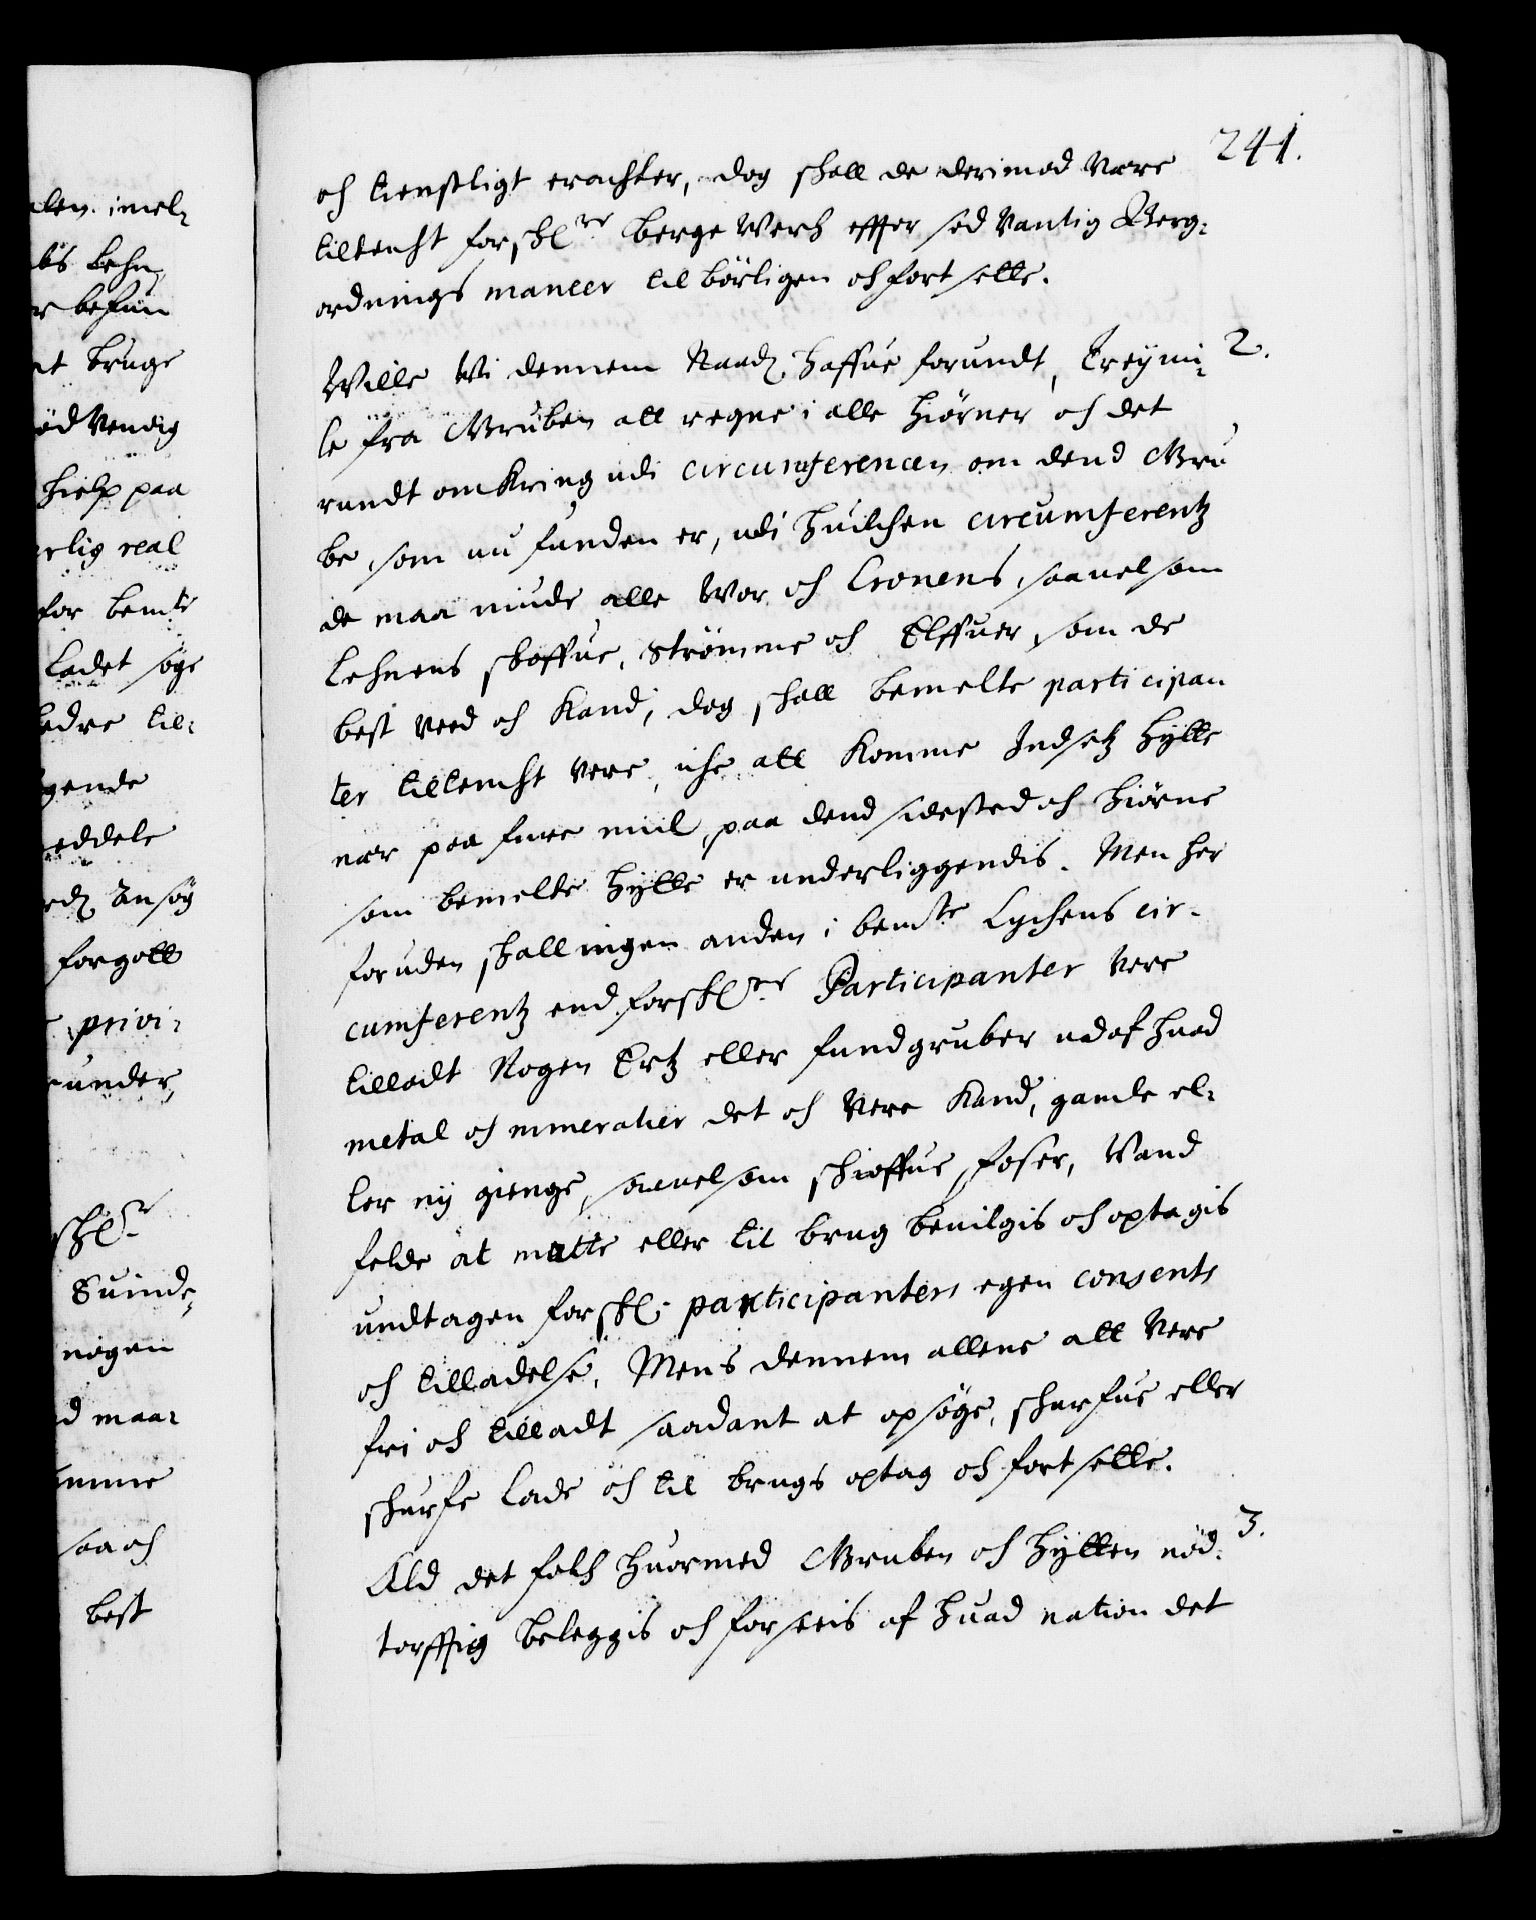 241.
och tienstligt erachter, dog shall de derimod være
tiltencht forskr.ne berge Werch effter sedvantig Berg-
ordnings maneer tilbörligen och fortsette.
Wille Wi dennem Naadt. haffue forundt, Treij mi- 2.
le fra Gruben att regne i alle hiörner och det
rundt omkring udi circumferencen om dend Gru
be, som nu funden er, udi huilchen circumferentz
de maa niude alle Wor och Cronens, saauelsom
Lehnens skoffue, Strömme och Elffuer, som de
best ved och Kand, dog shall bemelte participan
ter tiltencht vere, iche att komme Indsetz hytte
nær paa fiire miil, paa dend side sted och hiörne
som bemelte hytte er underliggendis. Men her
foruden shall ingen anden i bemte. Lychens cir-
cumferentz end forskr.ne Participanter vere
tilladt Nogen Ertz eller fundgruber udaf huad
metal och mineralier det och vere Kand, gamle el-
ler nij gienge, saauelsom schoffue, foser, Vand
felde at mutte eller til brug beuilgis och optagis
undtagen forskr. participanters egen consents
och tilladelse, Mens dennem allene att vere
fri och tilladt saadant at opsöge, shurfue eller
shurfe lade och til brugs optag och fortsette.
Ald det folch huormed Gruben och hytten nöd- 3.
torfftig beleggis och forseeis af huad nation det
alen. imel-
bs Lehn,
r befun
at bruge
ödvendig
hielp paa
rlig real
for bemte
ladet söge
edre til-
gende
eddele
ansög
forgott
privi-
under,
skr.
Suinde,
nogen
d maa-
mme
saa och
best